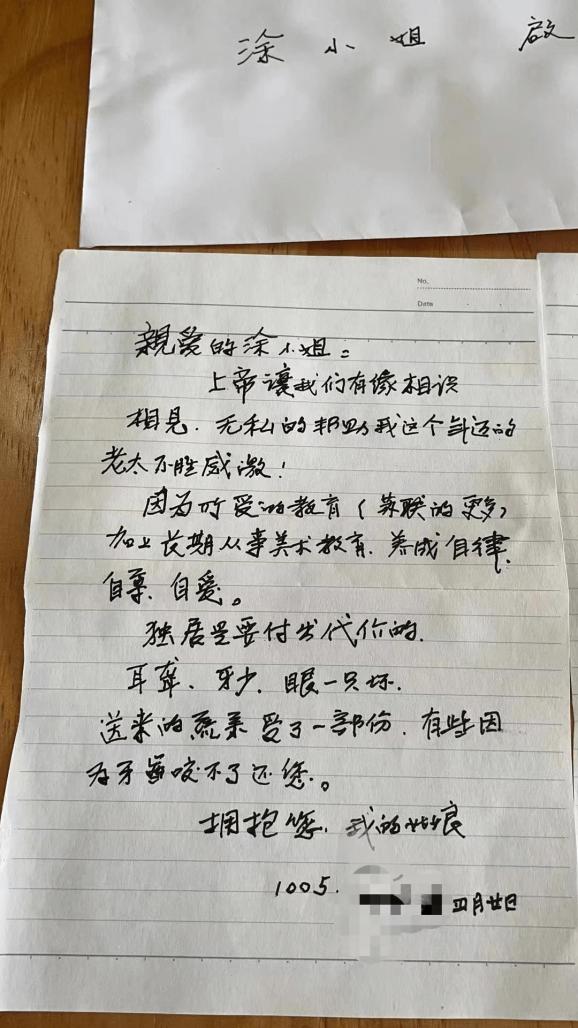 涂小姐 启
No.
Date
親爱的涂小姐：
上帝讓我们有缘相识
相見．无私的邦助我这个年迈的
老太不胜感激！
因为所受的教育（苏联的更多）
加上长期从事美术教育．养成自律、
自尊、自爱。
独居是要付出代价的．
耳聋．牙少．眼一只坏．
送来的蔬菜受了一部份．有些因
为牙 咬不了还您。
拥抱您．我的姑娘
1005．
四月廿日